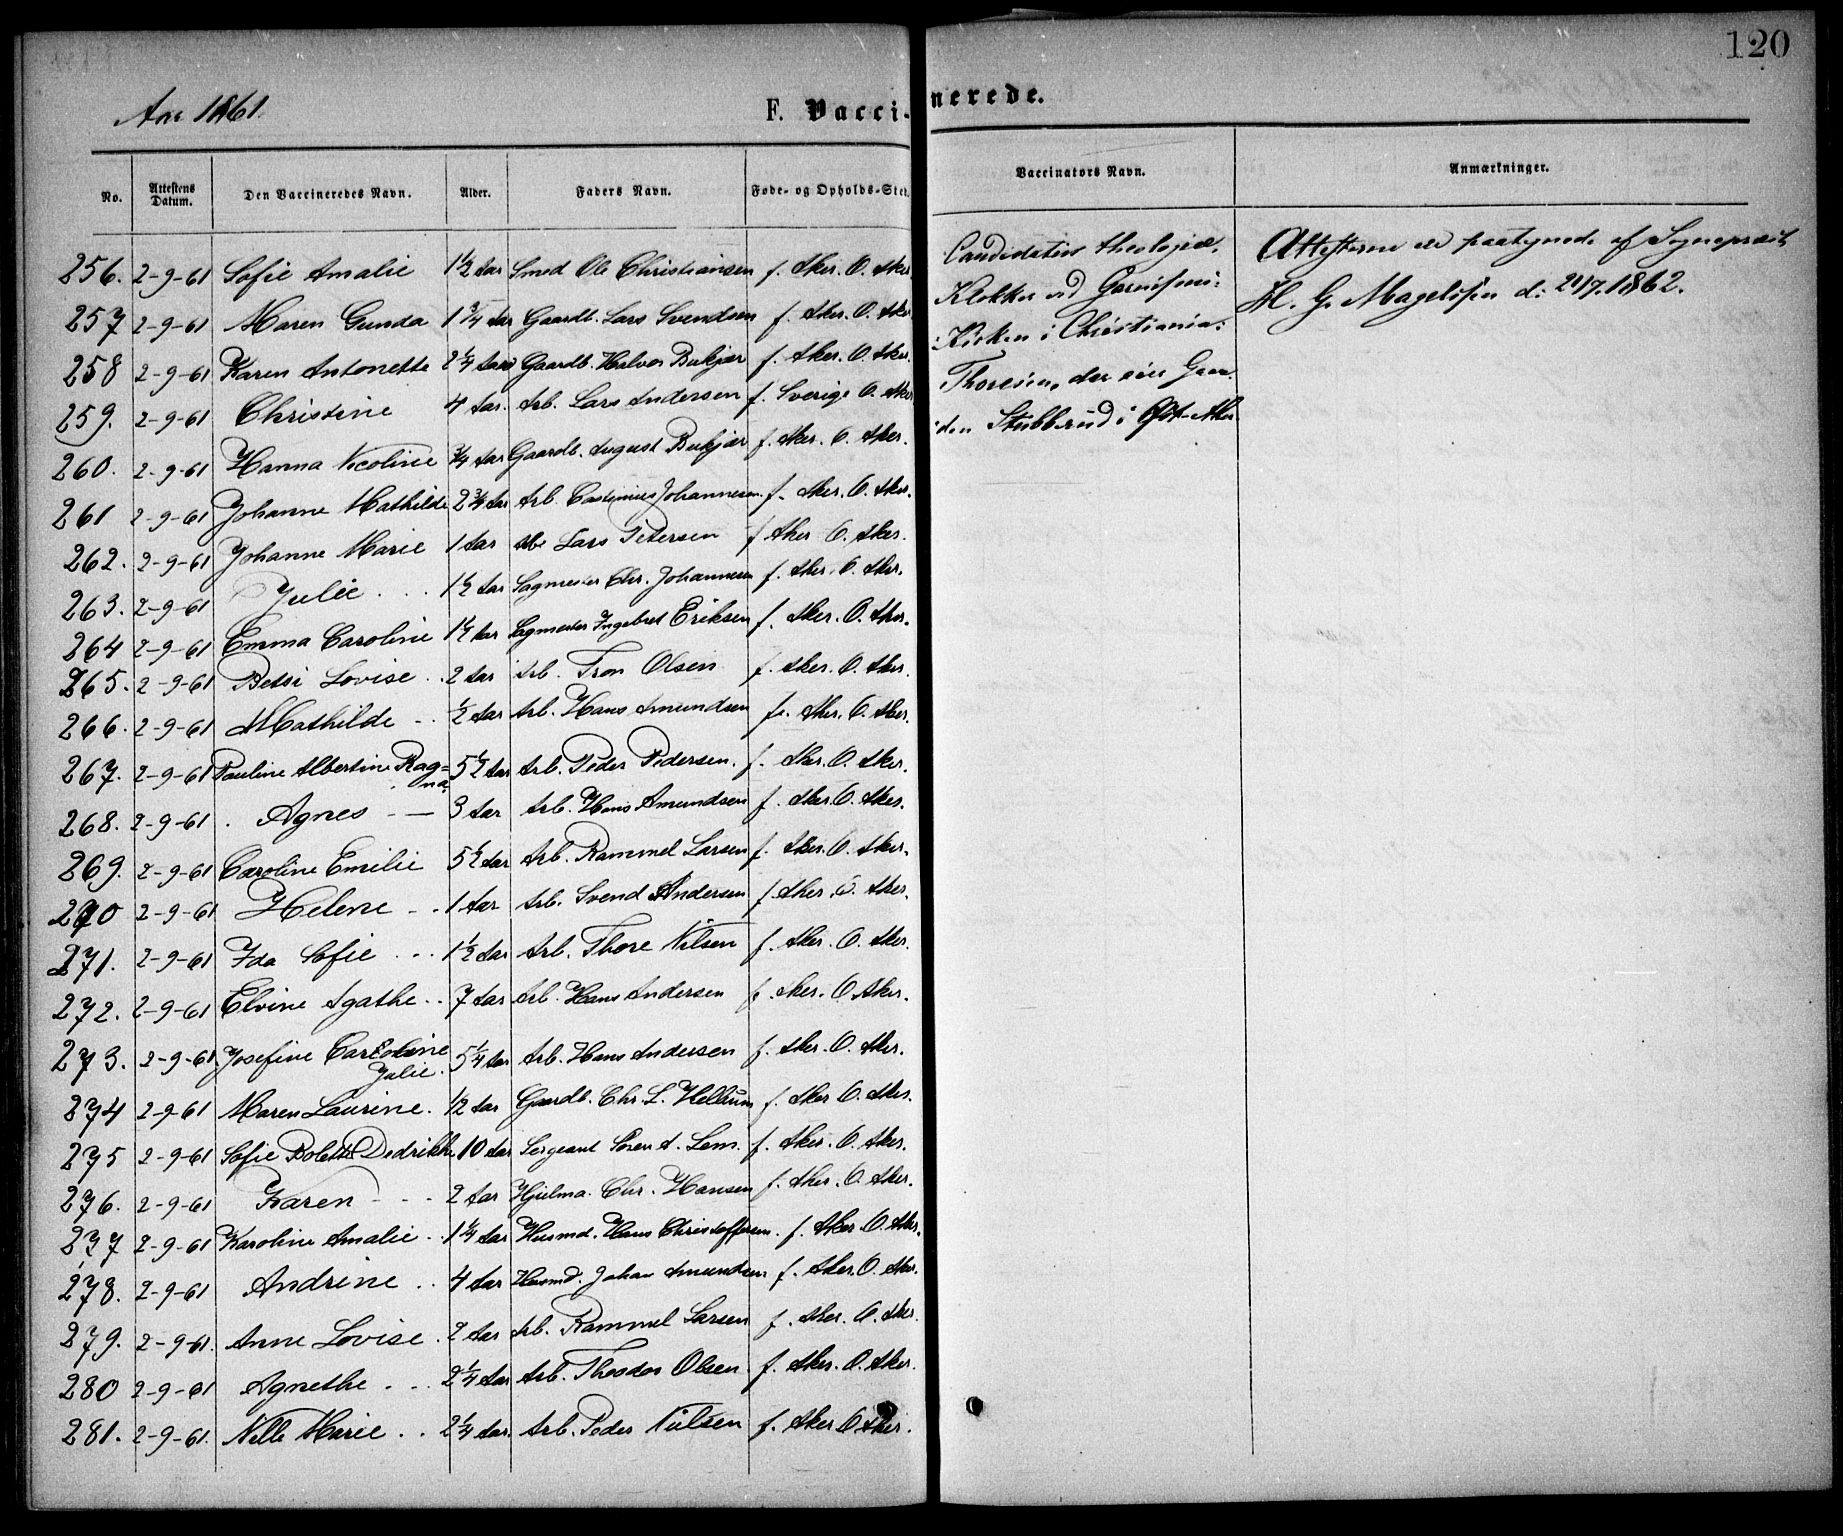 120
Aar 1861.
F. Vacci-nerede.
No. Attestens Datum. Den Vaccineredes Navn. Alder. Faders Navn. Føde- og Opholds-Sted. Vaccinators Navn. Anmærkninger.
256. 2-9-61 Sofie Amalie 1½ Aar Smed Ole Christiansen f. Aker. O. Aker
257 2-9-61 Maren Gunda 1¾ Aar Gaardb. Lars Svendsen f. Aker. O. Aker
258 2-9-61 Karen Antonette 2¼ Aar Gaardb. Halvor Bukjær f. Aker. O. Aker.
259. 2-9-61 Christine 4 Aar. Arb. Lars Andersen f. Sverige O. Aker
260. 2-9-61 Hanna Nicoline ¾ Aar Gaardb. August Bukjær f. Aker. O. Aker.
261 2-9-61 Johanne Mathilde 2¾ Aar Arb. Johannesen f. Aker. O. Aker.
262. 2-9-61 Johanne Marie 1 Aar Lars Petersen f Aker O. Aker.
263. 2-9-61 Julie . . . 1½ Aar Sagmester Chr. Johannesen f. Aker. O. Aker.
264 2-9-61 Emma Caroline 1½ Aar Sagmester Ingebret Eriksen f. Aker. O. Aker.
265. 2-9-61 Betsi Lovise . . 2 Aar Arb. Tron Olsen f. Aker. O. Aker.
266. 2-9-61 Mathilde - - ½ Aar Arb. Hans Amundsen f. Aker. O. Aker.
267. 2-9-61 Pauline Albertine Rag=
na 5½ Aar Arb. Peder Pedersen. f. Aker. O. Aker.
268. 2-9-61 . Agnes - — 3 Aar Arb. Hans Amundsen f. Aker O. Aker.
269. 2-9-61 Caroline Emilie 5½ Aar Arb. Rammel Larsen f. Aker. O. Aker.
270 2-9-61 Helene - . 1 Aar Arb. Svend Andersen f. Aker. O. Aker.
271. 2-9-61 Ida Sofie . . . 1½ Aar Arb. Thore Nilsen f. Aker. O. Aker.
272. 2-9-61 Elvine Agathe . . 7 Aar Arb. Hans Andersen f. Aker. O. Aker.
273. 2-9-61 Josefine Caroline
Julie. 5¼ Aar Arb. Hans Andersen f. Aker. O. Aker.
274 2-9-61 Maren Laurine. ½ Aar Gaardb. Chr. L. Hellum f. Aker O. Aker.
275 2-9-61 Sofie Bolette Dedrikke 10 Aar Sergeant Søren A. Lem. f. Aker. O. Aker.
276. 2-9-61 Karen - - - 2 Aar Hjulma. Chr. Hansen f. Aker. O. Aker.
237 2-9-61 Karoline Amalie . 1¼ Aar Husmd. Hans Christoffersen. f. Aker O. Aker.
278. 2-9-61 Andrine . . 4 Aar Husmd. Johan Amundsen f. Aker. O. Aker.
279. 2-9-61. Anne Lovise . 2 Aar Arb. Rammel Larsen f. Aker. O. Aker.
280 2-9-61 Agnethe . . . 2¼ Aar Arb. Theodor Olsen f. Aker. O. Aker.
281. 2-9-61. Nelle Marie . . 2¼ Aar. Arb. Peder Nielsen f. Aker O Aker.
Candidatus theologiæ,
Klokker ved Garnisons:
:Kirken i Christiania:
Thoresen, der eier Gaar:
:den Stubberud i Øst-Aker
Attesterne ere paategnede af Sognepræst
H. G. Magelssen d: 21/7.1862.